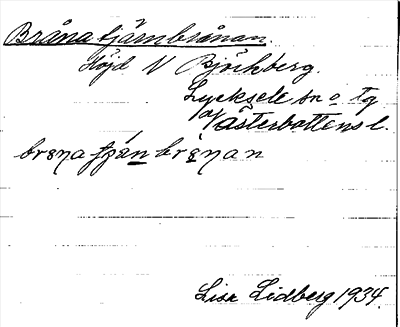 Bråna tjärnbrånan.
Höjd N Björkberg.
Lycksele sn o tg
av Västerbottens l.
brɘna tjän brɘnan
Lisa Lidberg 1934.